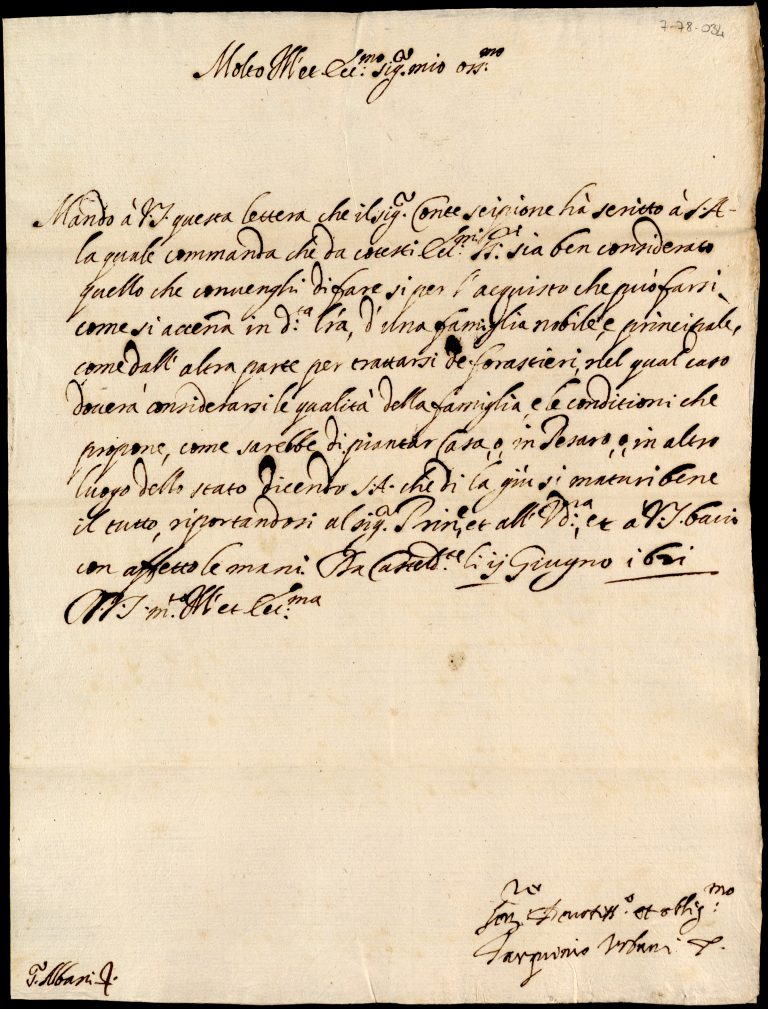 7-78-034
Molto Ill.e et Ecc.mo sig.r mio oss.mo
Mando à V.S. questa lettera che il sig.r Conte scipione hà scritto à S.A.
la quale commanda che da cotesti Ecc.mi SS.ri sia ben considerato
quello che convenghi di fare si per l'acquisto che può farsi
come si accena in d.ta l'ra, d'una famiglia nobile, e principale,
come dall'altra parte per trattarsi de forastieri, nel qual caso
douerà considerarsi le qualità della famiglia, e le conditioni che
propone, come sarebbe di piantar Casa, ò, in Pesaro, ò, in altro
luogo dello stato dicendo S.A. che di la giù si maturi bene
il tutto, riportandosi al sig.r Prin.e, et all' Vd.za, et à V.S. bacio
con affetto le mani. Da Casteld.te li ij Giugno 1621
D.V.S. m.to Ill.e et Ecc.ma
Ser.re Deuotiss.o et oblig.mo
Tarquinio Vrbani
T. Albani